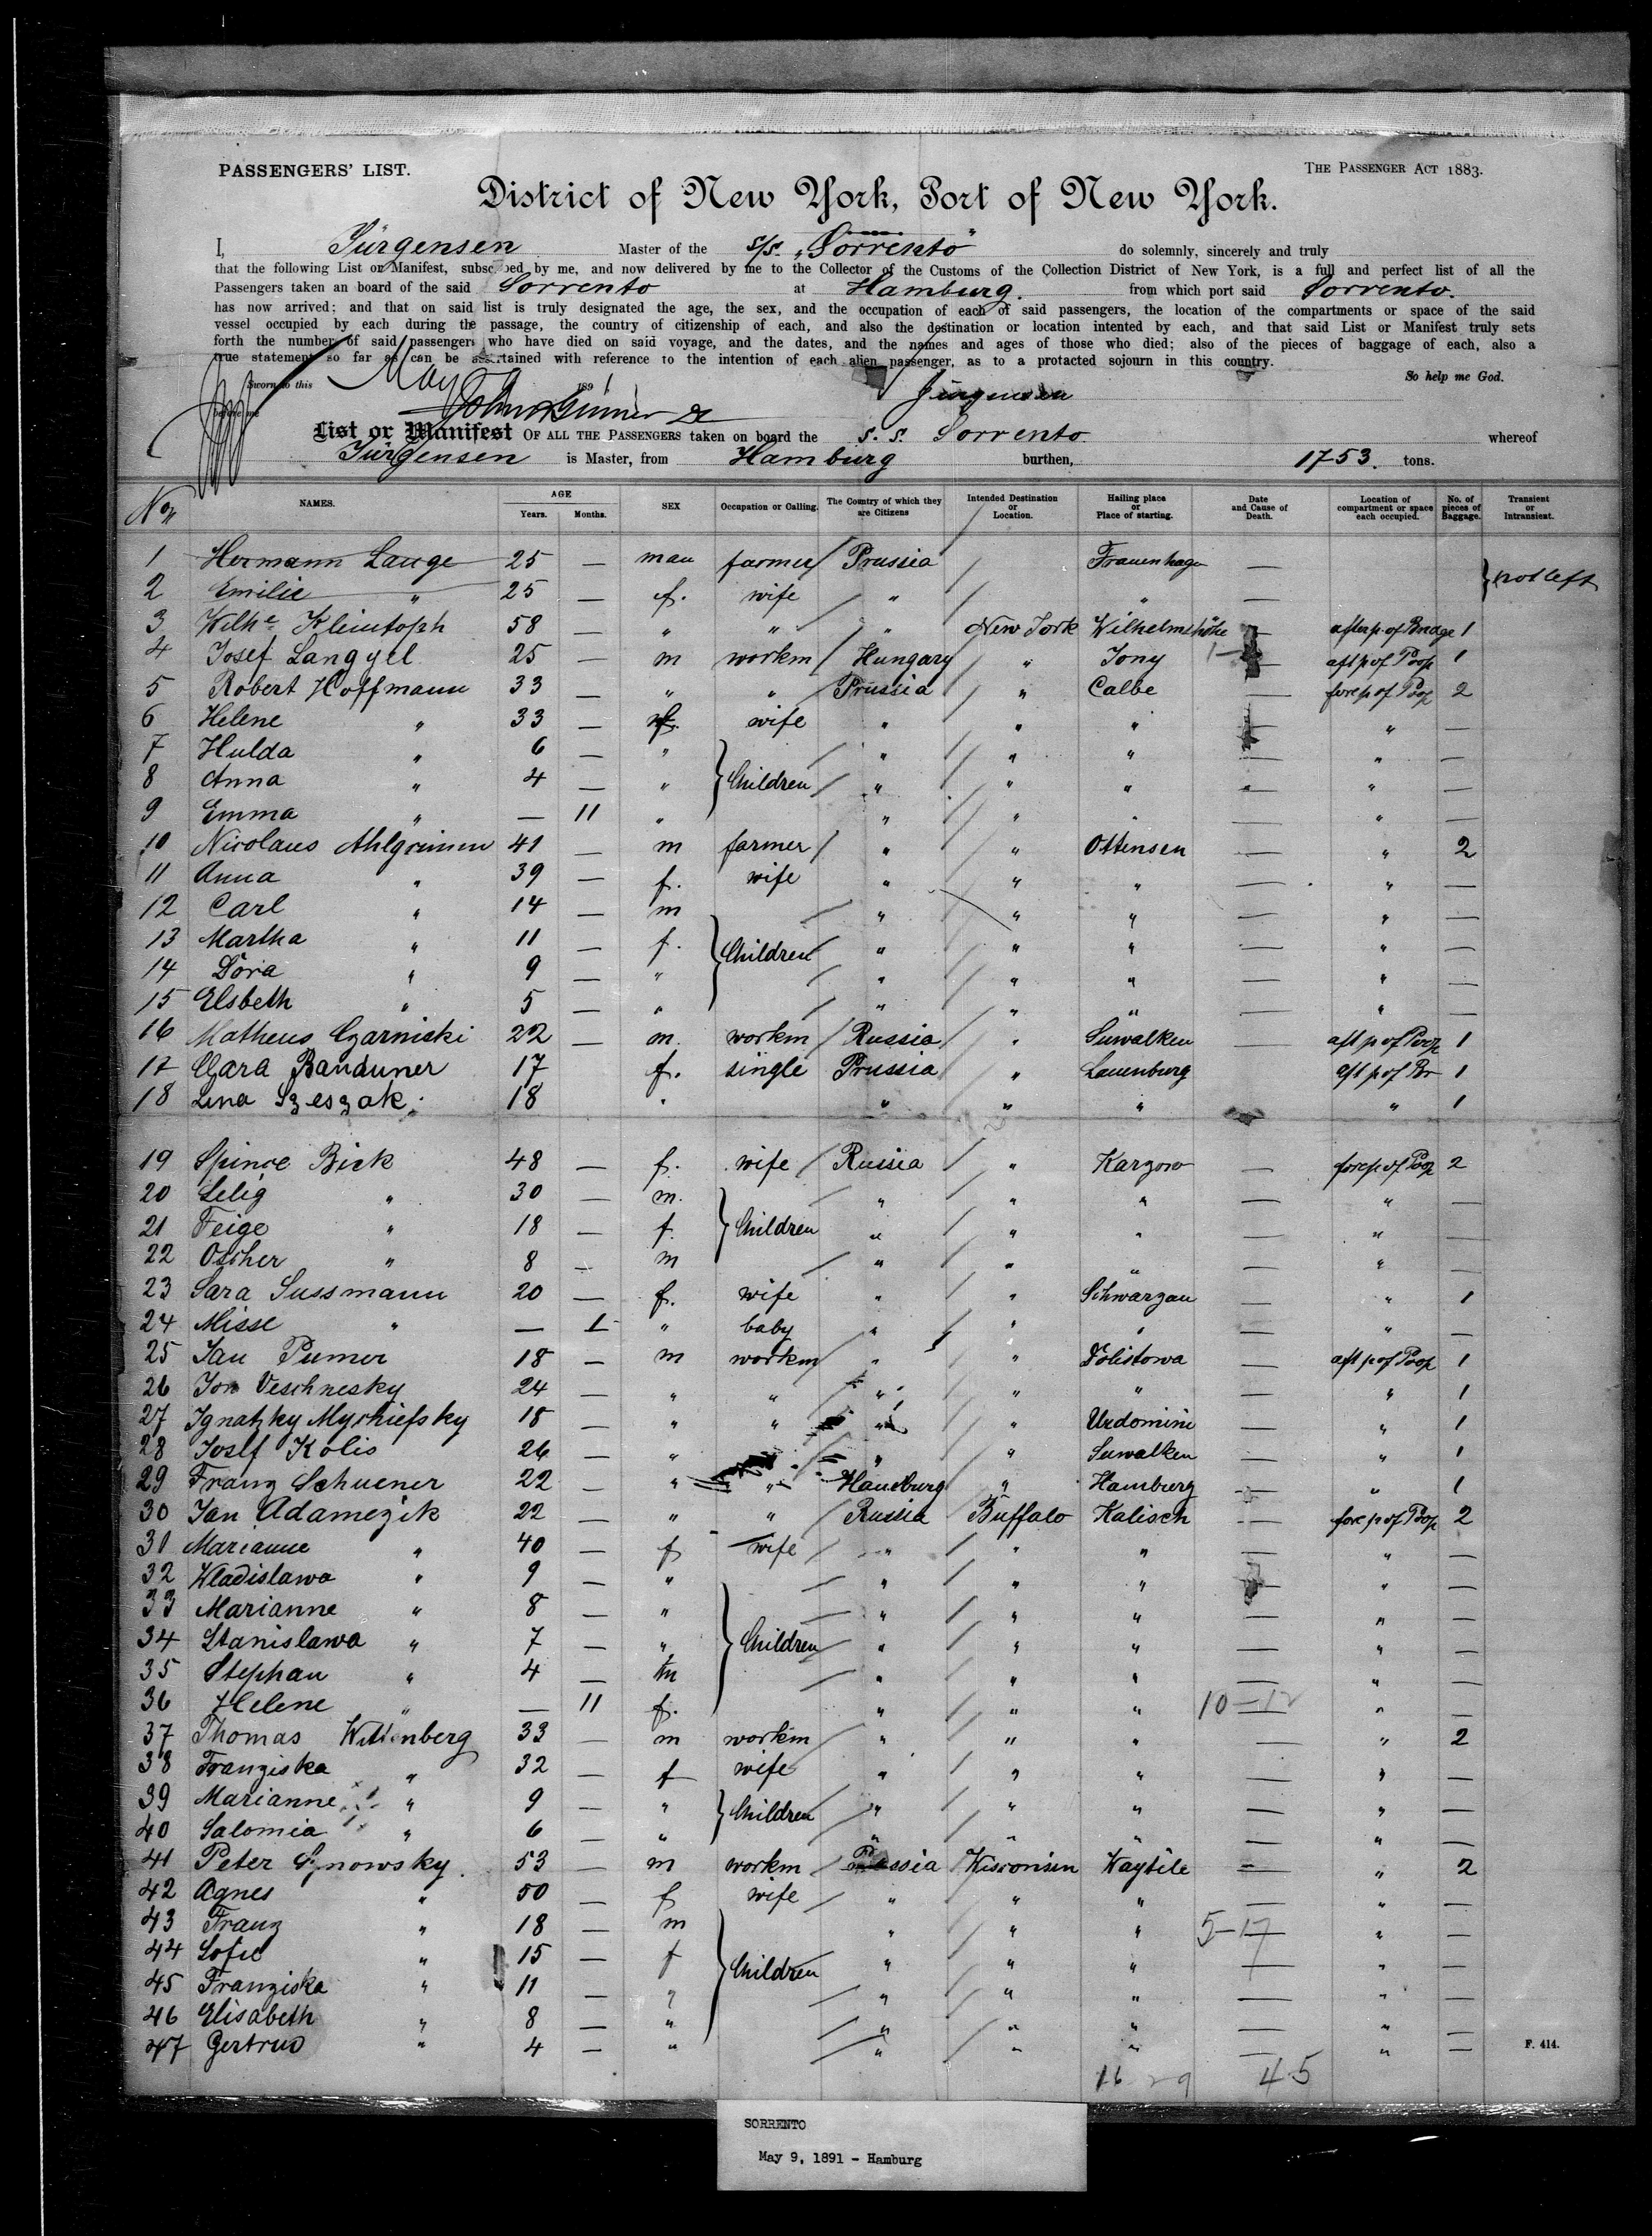 PASSENGERS' LIST.
THE PASSENGER ACT 1883.
District of New York, Port of New York.
I, Jürgensen Master of the s/s. „Sorrento" do solemnly, sincerely and truly
that the following List or Manifest, subscribed by me, and now delivered by me to the Collector of the Customs of the Collection District of New York, is a full and perfect list of all the
Passengers taken an board of the said Sorrento at Hamburg. from which port said Sorrento.
has now arrived; and that on said list is truly designated the age, the sex, and the occupation of each of said passengers, the location of the compartments or space of the said
vessel occupied by each during the passage, the country of citizenship of each, and also the destination or location intented by each, and that said List or Manifest truly sets
forth the number of said passengers who have died on said voyage, and the dates, and the names and ages of those who died; also of the pieces of baggage of each, also a
true statement so far as can be ascertained with reference to the intention of each alien passenger, as to a protacted sojourn in this country.
So help me God.
Sworn to this May 9 1891
Jürgensen
before me
List or Manifest OF ALL THE PASSENGERS taken on board the s. s. Sorrento whereof
Jürgensen is Master, from Hamburg burthen, 1753. tons.
No. NAMES. AGE Years. Months. SEX Occupation or Calling. The Country of which they are Citizens Intended Destination or Location. Hailing place or Place of starting. Date and Cause of Death. Location of compartment or space each occupied. No. of pieces of Baggage. Transient or Intransient.
1 Hermann Lange 25 — man farmer Prussia Frauenhagen — not left
2 Emilie " 25 — f. wife " " —
3 Wilhe Klintoph 58 — " " " New York Wilhelmshöhe — afterp. of Bridge 1
4 Josef Langyel 25 — m workm Hungary " Tony — aft p of Poop 1
5 Robert Hoffmann 33 — " " Prussia " Calbe — fore p of Poop 2
6 Helene " 33 — f. wife " " " — " —
7 Hulda " 6 — " " " " — " —
8 Anna " 4 — " Children " " " — " —
9 Emma " — 11 " " " " — " —
10 Nicolaus Ahlgrimm 41 — m farmer " " Ottensen — " 2
11 Anna " 39 — f. wife " " " — " —
12 Carl " 14 — m " " " — " —
13 Martha " 11 — f. Children " " " — " —
14 Dora " 9 — " " " " — " —
15 Elsbeth " 5 — " " " " — " —
16 Matheus Czarniski 22 — m. workm Russia " Suwalken — aft p of Poop 1
17 Clara Banduner 17 f. single Prussia " Lauenburg aft p of Br 1
18 Lina Szeszak 18 " " " " — " 1
19 Spince Bick 48 — f. wife Russia " Kargow — fore p of Poop 2
20 Selig " 30 — m. " " " — " —
21 Feige " 18 — f. Children " " " — " —
22 Oscher " 8 — m " " " — " —
23 Sara Sussmann 20 — f. wife " " Schwarzau — " 1
24 Misse " — 1 " baby " " " — " —
25 Jan Pumer 18 — m workm " " Dolistowa — aft p of Poop 1
26 Jon Veschnesky 24 — " " " " " — " 1
27 Ignatzky Myschiefsky 18 — " " " " Urdomini — " 1
28 Josef Kolis 26 — " " " Suwalken — " 1
29 Franz Schuener 22 — " " Hamburg " Hamburg — " 1
30 Jan Adamezik 22 — " " Russia Buffalo Kalisch — fore p of Poop 2
31 Marianne " 40 — f wife " " " — " —
32 Wladislawa " 9 — " " " " — " —
33 Marianne " 8 — " " " " — " —
34 Stanislawa " 7 — " Children " " " — " —
35 Stephan " 4 — m " " " — " —
36 Helene " — 11 f. " " " 10—12 " —
37 Thomas Wittenberg 33 — m workm " " " — " 2
38 Franziska " 32 — f wife " " " — " —
39 Marianne " 9 — " Children " " " — " —
40 Salomia " 6 — " " " " — " —
41 Peter Gynowsky 53 — m workm Prussia Wisconsin Waybile — " 2
42 Agnes " 50 — f wife " " " — " —
43 Franz " 18 — m " " " 5—17 " —
44 Sofie " 15 — f Children " " " — " —
45 Franziska " 11 — " " " " — " —
46 Elisabeth " 8 — " " " " — " —
47 Gertrud " 4 — " " " " — " —
F. 414.
16 29 45
SORRENTO
May 9, 1891 - Hamburg